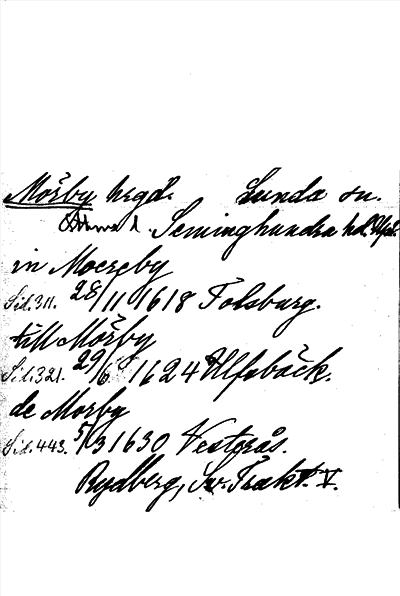 Mörby hrgd. Lunda sn.
Seminghundra hd. Upl.
in Moereby
Sid. 311. 28/11 1618 Tolsburg.
till Mörby
Sid. 321. 29/6 1624 Ulfsbäck.
de Morby
Sid. 443. 5/3 1630 Vesterås.
Rydberg, Sv. Trakt. V.